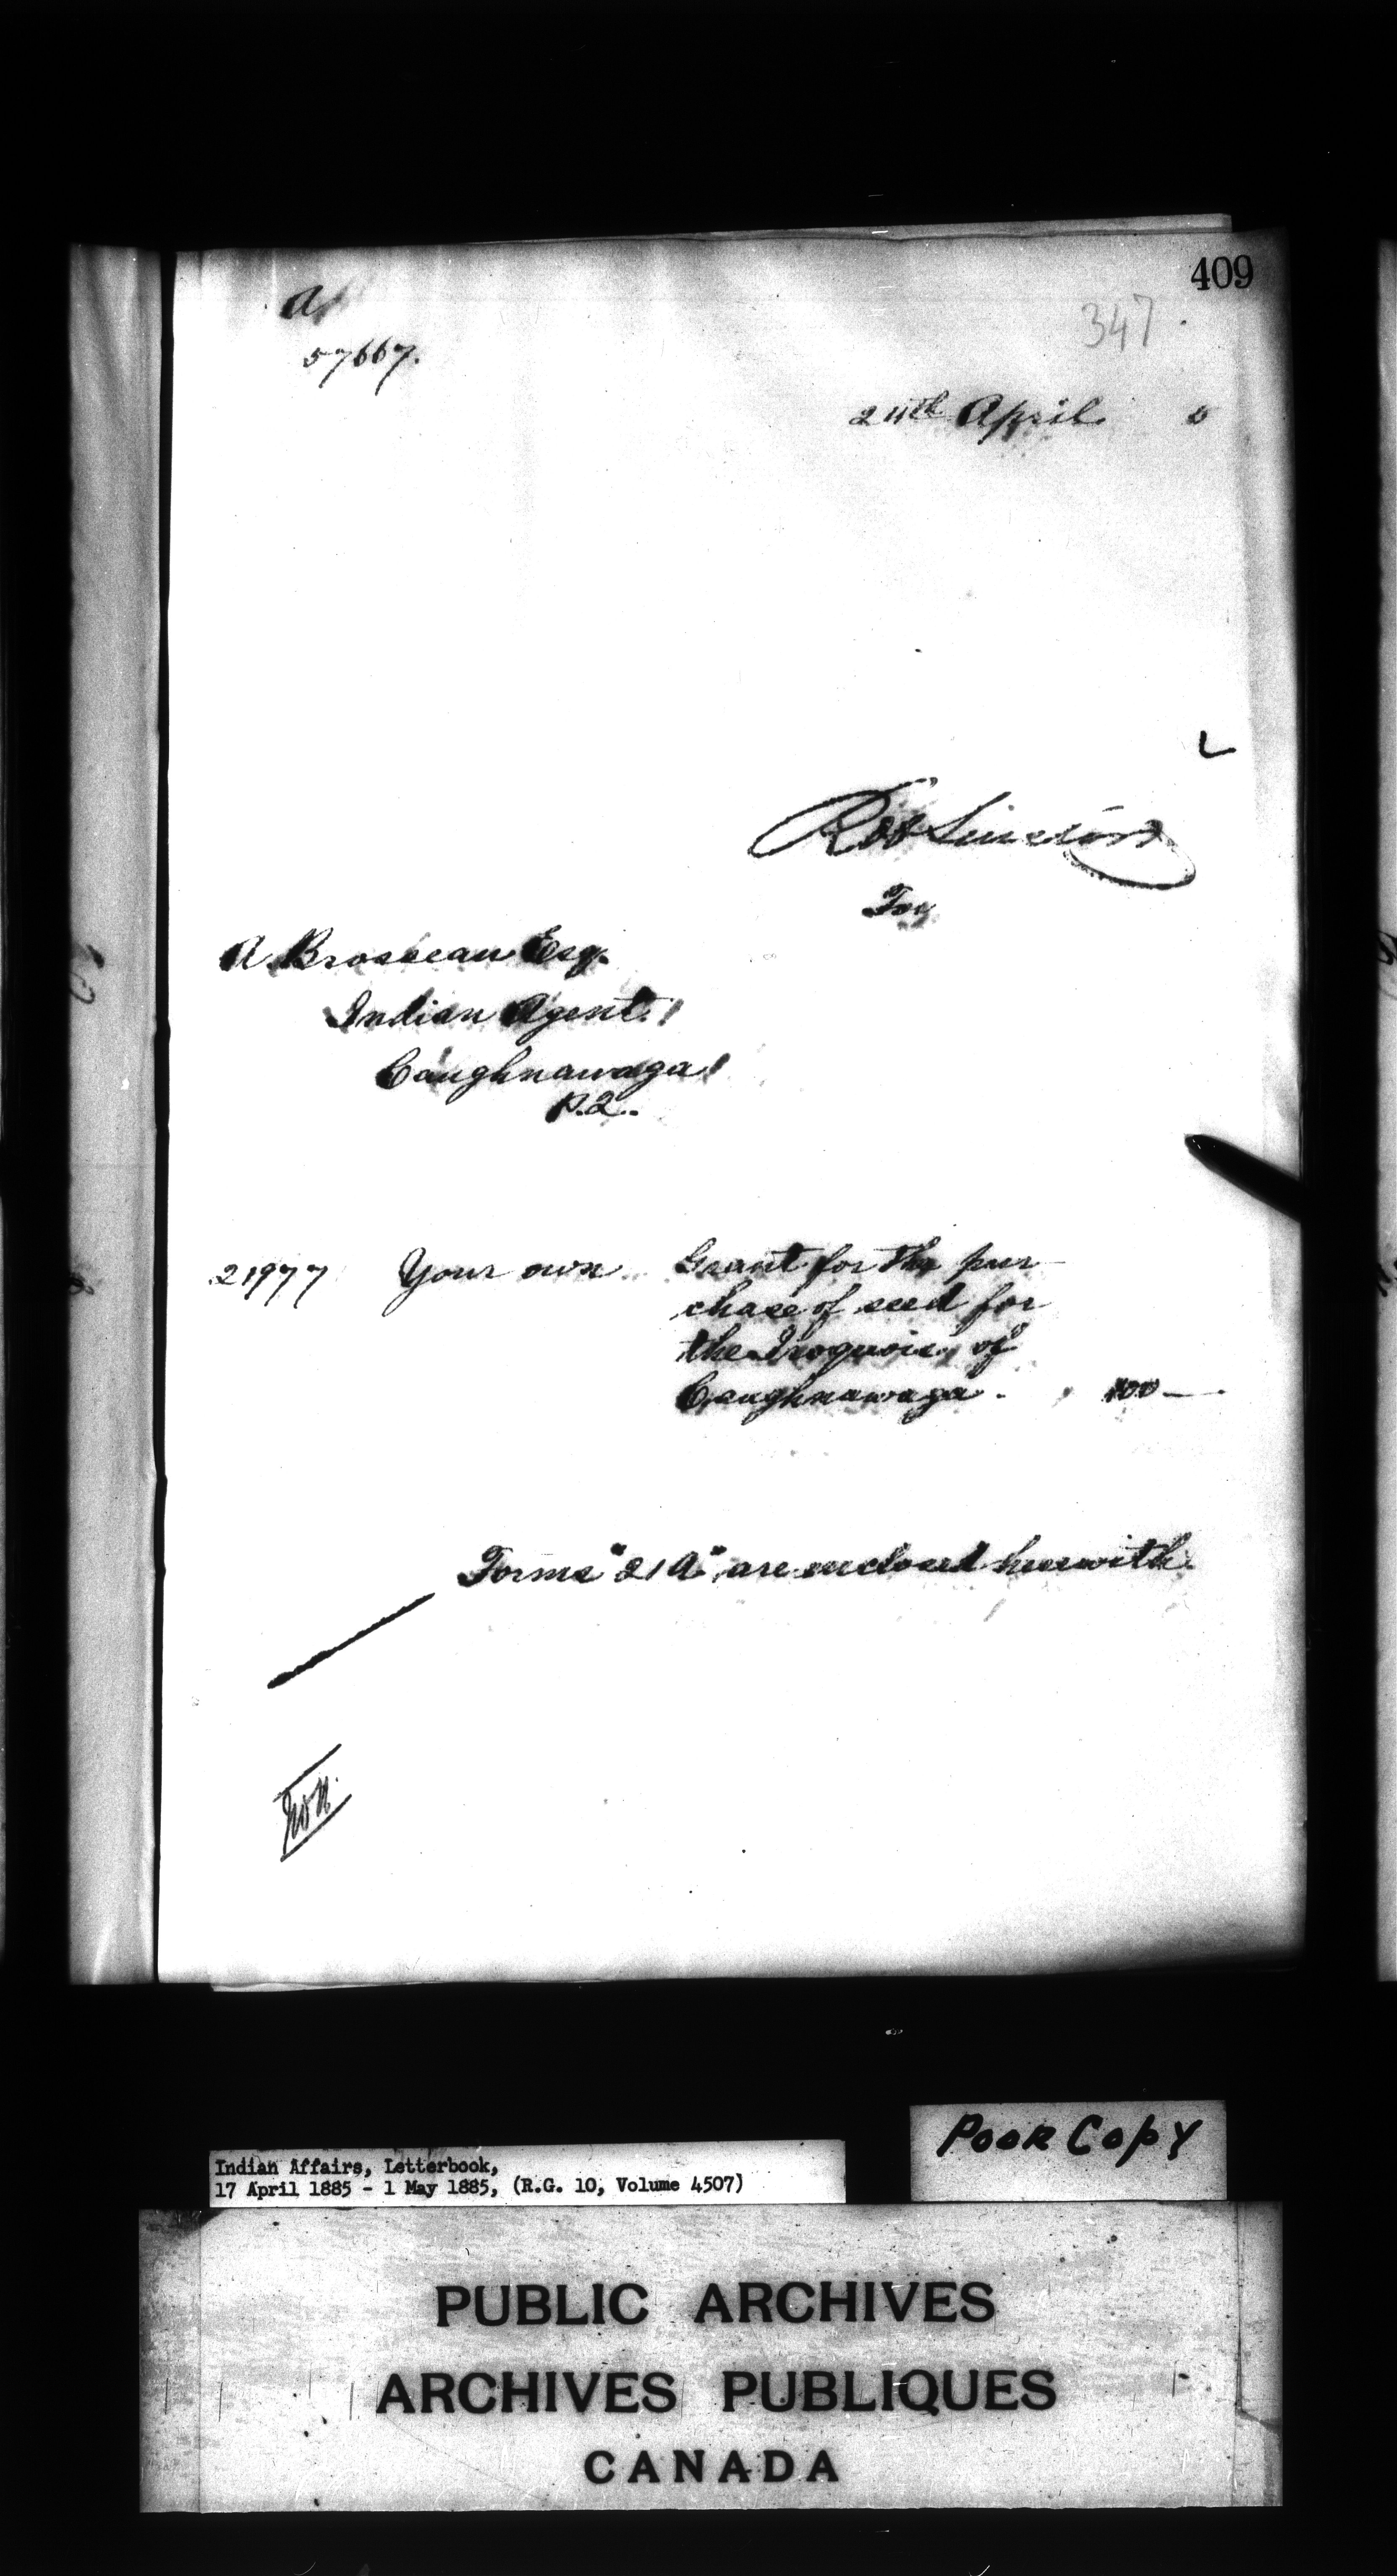 409
347
A
57667.
24th April 5
Rob Sinclair
For
A. Brosseau Esq.
Indian Agent
Caughnawaga
P.Q.
21977 Your own Grant for the pur
chase of seed for
the Iroquois of
Caughnawaga. 100 —
Forms "21A" are enclosed herewith
Poor Copy
Indian Affairs, Letterbook,
17 April 1885 - 1 May 1885, (R.G. 10, Volume 4507)
PUBLIC ARCHIVES
ARCHIVES PUBLIQUES
CANADA